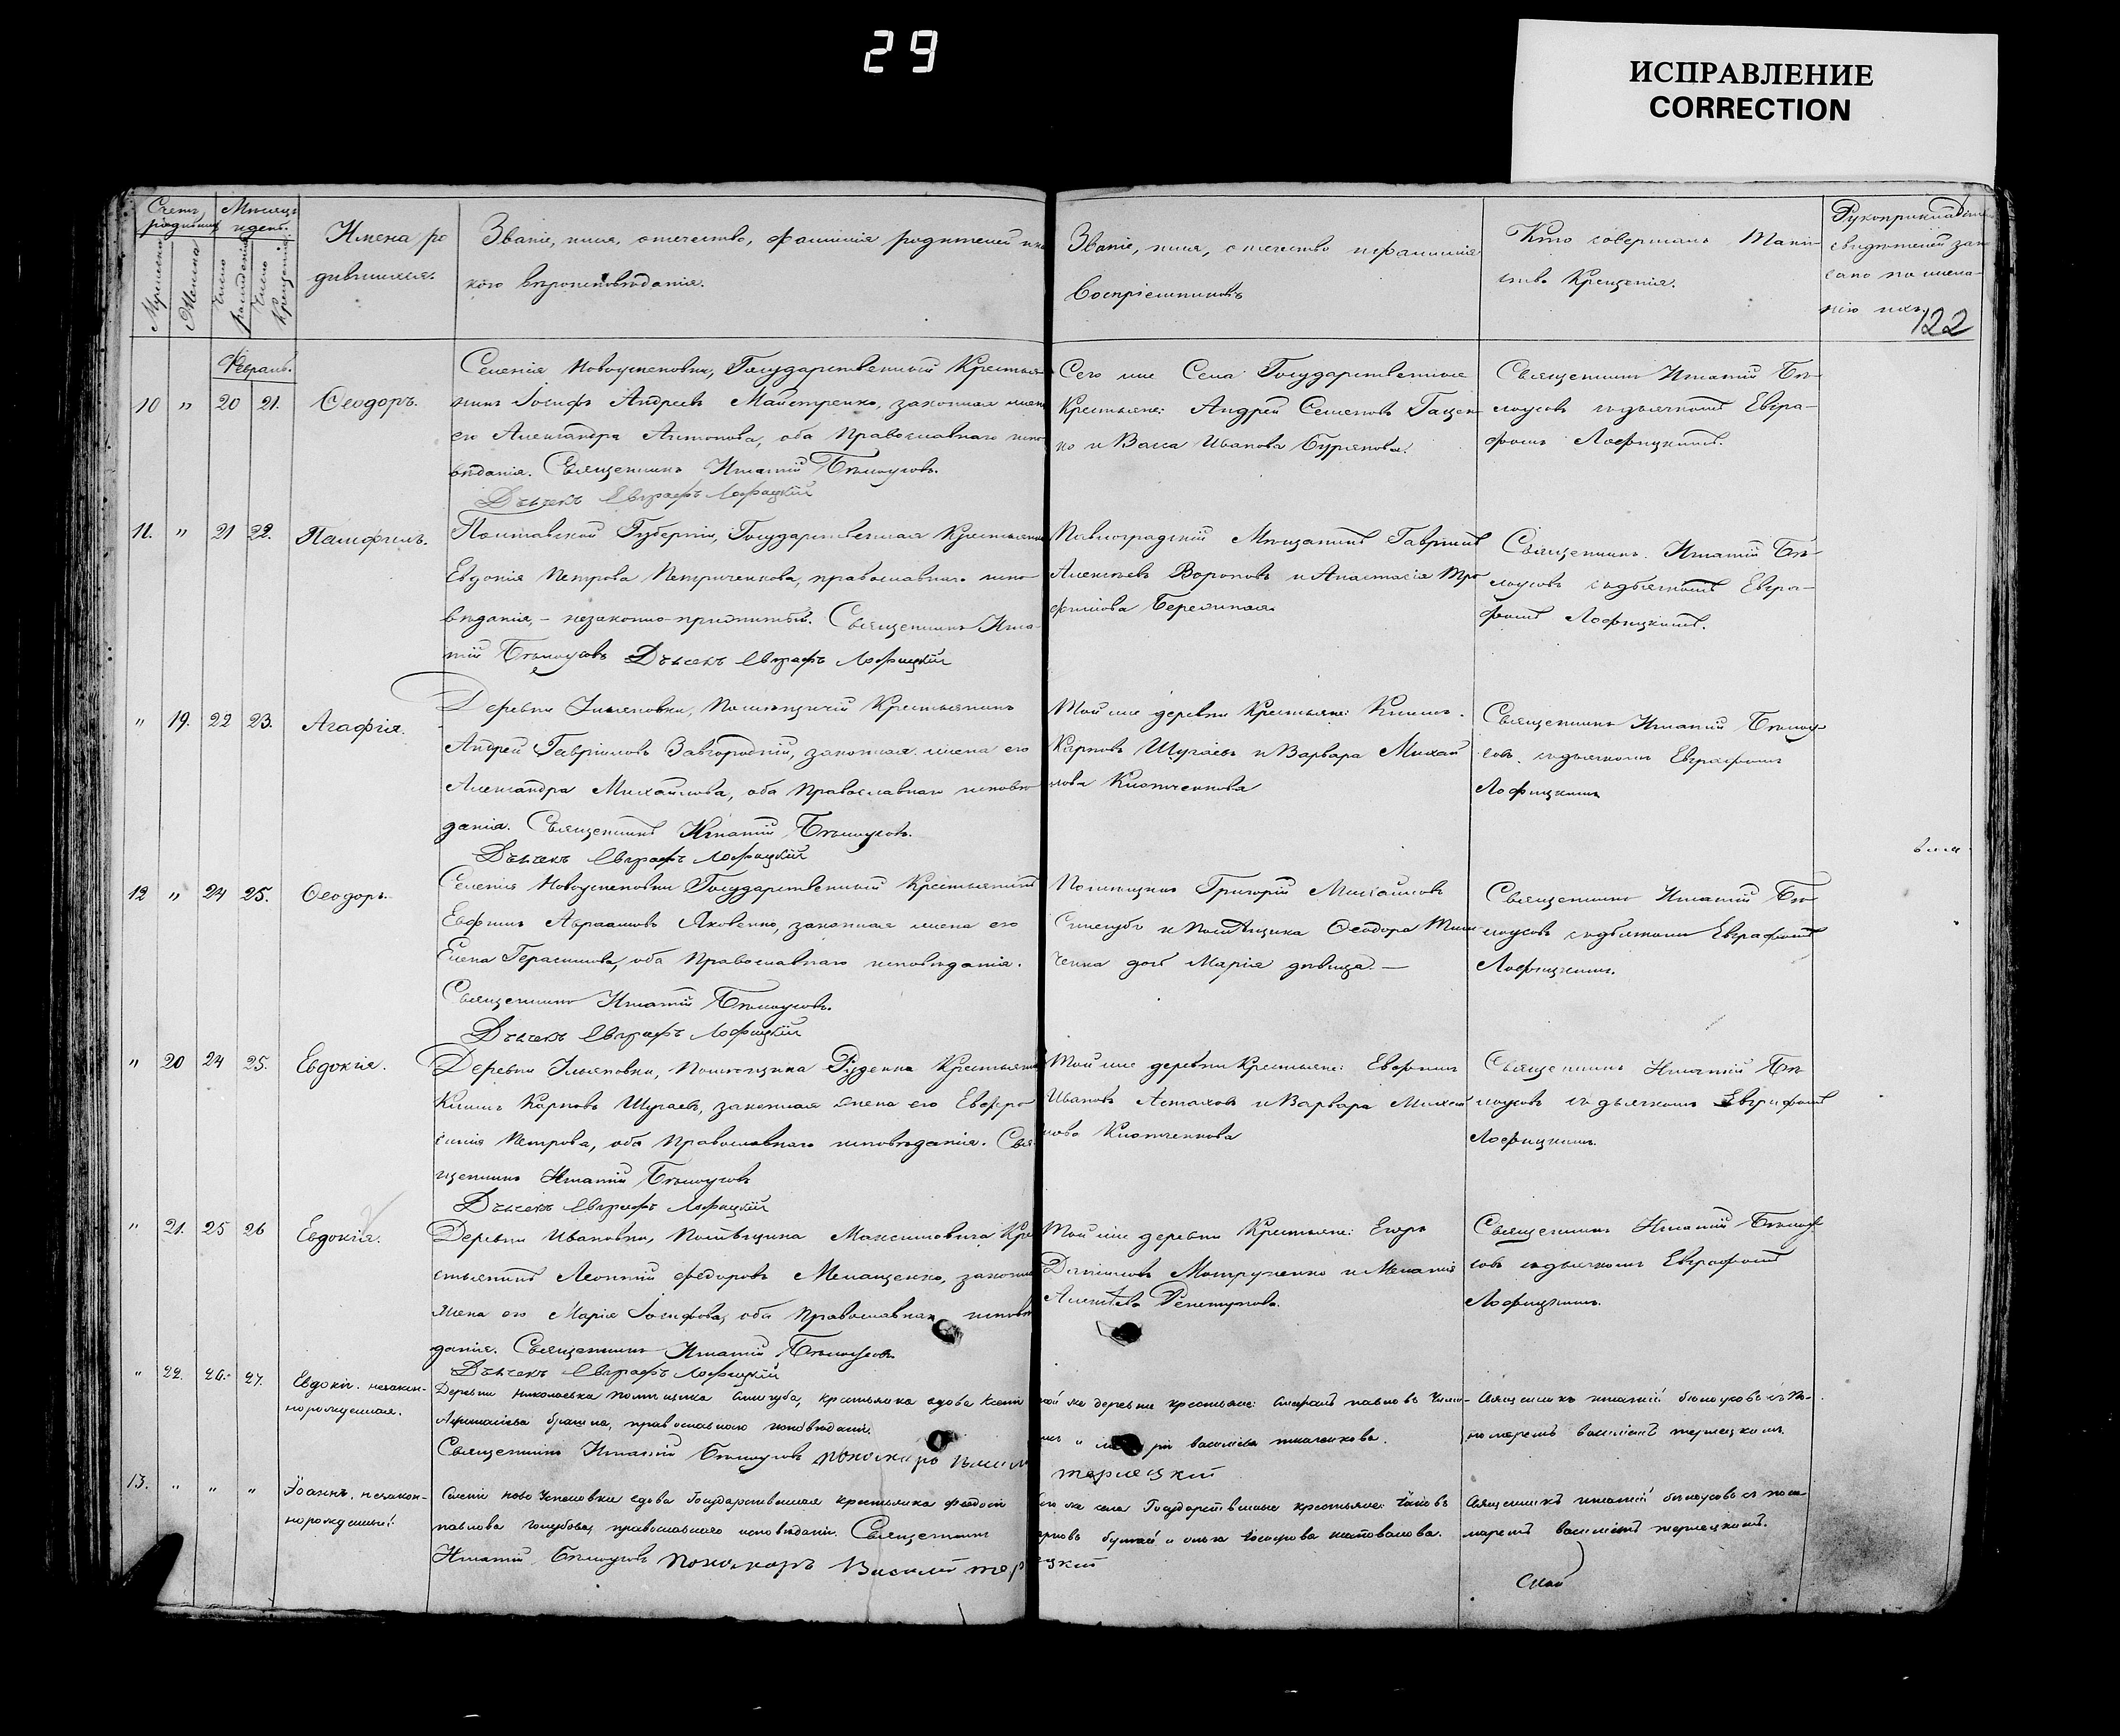 29
ИСПРАВЛЕНИЕ
CORRECTION
Счетъ родившихся
Мѣсяцъ и день.
Мужеска
Женска
Число рожденія
Число Крещенія
Имена ро
дившихся.
Званіе, имя, отечество, фамилія родителей и ка
кого вѣроисповѣданія.
Званіе, имя, отечество и фамилія
Воспріемниковъ
Кто совершалъ Таин
ство Крещенія.
Рукоприкладство
свидѣтелей зап
сано по жела-
нію ихъ
122
Февраль.
10 " 20 21. Ѳеодоръ.
Селенія Новоуспеновки, Государственный Крестья
нинъ Іосифъ Андреевъ Майстренко, законная жена
его Александра Антонова, оба Православнаго испо
вѣданія. Священникъ Игнатій Бѣлоусовъ.
Дьячекъ Евграфъ Лофицкій
Сего же Села Государственные
Крестьяне: Андрей Семеновъ Гацен
ко и Васса Иванова Бурянова.
Священникъ Игнатій Бѣ-
лоусовъ съ дьячкомъ Евгра-
фомъ Лофицкимъ.
11. " 21 22. Памфилъ.
Полтавской Губерніи, Государственная Крестьянка
Евдокія Петрова Петриченкова, православнаго испо
вѣданія, - незаконно-прижитый. Священникъ Игна-
тій Бѣлоусовъ Дьячекъ Евграфъ Лофицкій
Павлоградскій Мѣщанинъ Гавріилъ
Алексѣевъ Вороновъ и Анастасія Тро
фимова Бережная.
Священникъ Игнатій Бѣ-
лоусовъ съ дьячкомъ Евгра-
фомъ Лофицкимъ.
" 19. 22 23. Агафія.
Деревни Ильяновки, Помѣщичій Крестьянинъ
Андрей Гавріиловъ Завгородній, законная жена его
Александра Михайлова, оба Православнаго исповѣ
данія. Священникъ Игнатій Бѣлоусовъ.
Дьячекъ Евграфъ Лофицкій
Той же деревни Крестьяне: Климъ
Карповъ Шугаевъ и Варвара Михай
лова Клотченкова
Священникъ Игнатій Бѣлоу-
совъ съ дьячкомъ Евграфомъ
Лофицкимъ
12 " 24 25. Ѳеодоръ.
Селенія Новоуспеновки Государственный Крестьянинъ
Евфимъ Авраамовъ Яковенко, законная жена его
Елена Герасимова, оба Православнаго исповѣданія.
Священникъ Игнатій Бѣлоусовъ.
Дьячекъ Евграфъ Лофицкій
Помѣщикъ Григорій Михайловъ
и Помѣщика Ѳеодора
дочь Марія дѣвица. —
Священникъ Игнатій Бѣ-
лоусовъ съ дьячкомъ Евграфомъ
Лофицкимъ.
" 20 24 25. Евдокія.
Деревни Ильяновки, Помѣщика Руденка Крестьянинъ
Климъ Карповъ Шугаевъ, законная жена его Евфро
синія Петрова, оба Православнаго исповѣданія. Свя
щенникъ Игнатій Бѣлоусовъ
Дьячекъ Евграфъ Лофицкій
Той же деревни Крестьяне: Евфимъ
Ивановъ Астаховъ и Варвара Михай
лова Клотченкова
Священникъ Игнатій Бѣ
лоусовъ съ дьячкомъ Евграфомъ
Лофицкимъ.
" 21. 25 26 Евдокія.
Деревни Ивановки, Помѣщика Максимовича Кре
стьянинъ Леонтій Федоровъ Мелащенко, законная
жена его Марія Іосифова, оба Православнаго исповѣ
данія. Священникъ Игнатій Бѣлоусовъ
Дьячекъ Евграфъ Лофицкій
Той же деревни Крестьяне: Егоръ
Даніиловъ и Меланія
Алексѣева Репетунова.
Священникъ Игнатій Бѣлоу-
совъ съ дьячкомъ Евграфомъ
Лофицкимъ.
" 22. 26. 27. Евдокія. незакон-
норожденная.
Деревни Николаевка помѣщика крестьянка вдова
православнаго исповѣданія.
Священникъ Игнатій Бѣлоусовъ пономарь Василій терлецкій
той же деревни крестьяне: павловъ
Священникъ игнатій бѣлоусовъ съ по-
номаремъ василіемъ терлецкимъ
13. " " " Іоаннъ. незакон-
норожденный.
Селенія ново Успеновки вдова Государственная крестьянка
павлова православнаго исповѣданія. Священникъ
Игнатій Бѣлоусовъ пономарь Василій терлецкій
Сего же села Государственные крестьяне: Іаковъ
Священникъ игнатій бѣлоусовъ съ поно
маремъ василіемъ терлецкимъ.